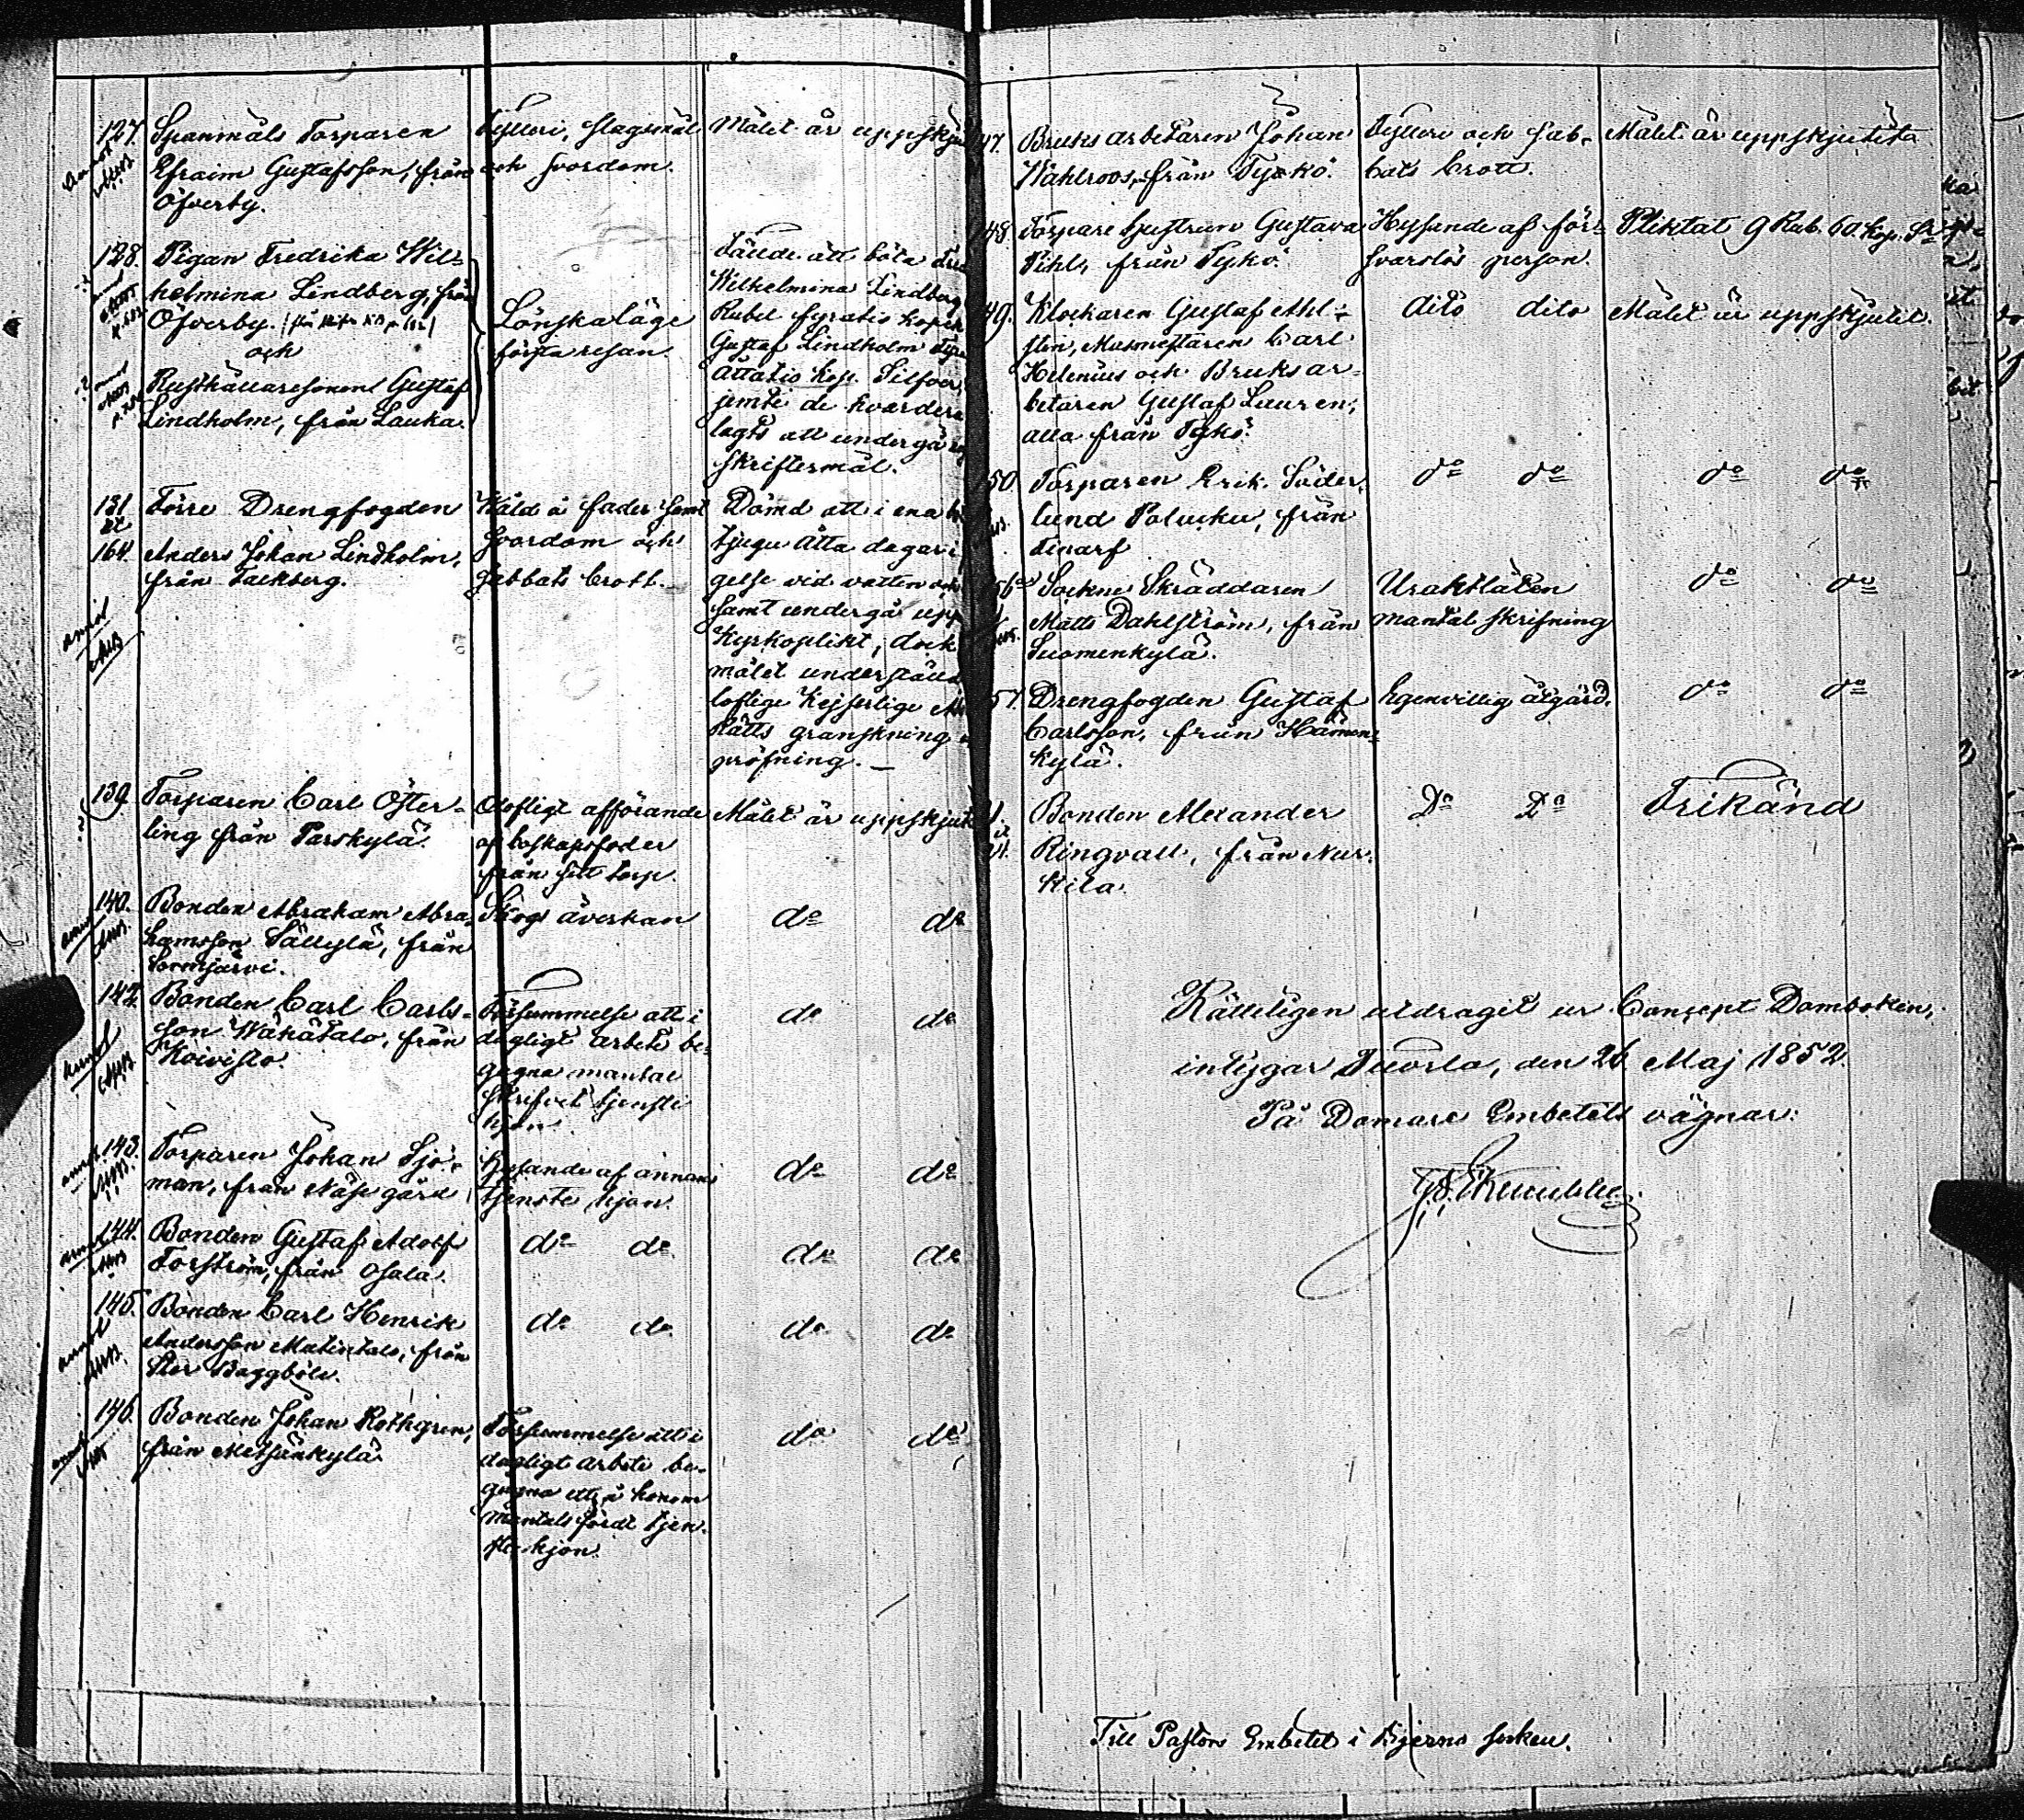 127. Spanmåls Torparen
Efraim Gustafsson, från
Öfverby.
Fylleri, slagsmål
och svordom.
Målet är uppskju
128. Pigan Fredrika Wil=
helmina Lindberg, från
Öfverby.
och
Rusthållaresonen Gustaf
Lindholm, från Lauka.
Lönskaläge
första resan.
Fälde att böta Fred
Wilhelmina Lindberg
Rubel fyratio kopek
Gustaf Lindholm
åttatio Kop. Silfver,
jemte de hvardera
lagts att undergå
skriftermål.
131
et
164.
Förre Drengfogden
Anders Johan Lindholm,
från Tackberg.
Våld å fader samt
svordom och
sabbats brott.
Dömd att i ena
tjugu åtta dagar i
gelse vid vatten och
samt undergå upp
Kyrkoplikt, dock
målet underställ
loflige Kejserlige
Rätts granskning
pröfning. —
139. Torparen Carl Öster=
ling från Parskylä.
Olofligt afförande
af boskapsfoder
från sitt torp.
Målet är uppskjut
140. Bonden Abraham Abra
hamsson Sällylä, från
Lormjärvi.
Skogs åverkan
do do
142. Bonden Carl Carls=
son Wähätalo, från
Koivisto.
Försummelse att i
dagligt arbete be=
gagna mantal
skrifvet tjenste
hjon.
do do
143. Torparen Johan Sjö=
man, från Näse gård
Hysande af annans
tjenste hjon.
do do
144. Bonden Gustaf Adolf
Forström, från Osala.
do do
do do
145. Bonden Carl Henrik
Andersson Matintalo, från
Stor Baggböle.
do do
do do
146. Bonden Johan Rothgren,
från Metsänkylä
Försummelse att i
dagligt arbete be=
gagna ett, å honom
mantals fördt tjen=
ste hjon.
do do
47. Bruks arbetaren Johan
Wahlroos, från Tykö.
Fylleri och sab=
bats brott.
Målet är uppskjutit
48. Torpare hustrun Gustava
Pihl, från Tykö.
Hysande af för=
svarslös person.
Pliktat 9 Rub. 60 Kop. Sr
49. Klockaren Gustaf Ahl=
sten, Masmästaren Carl
Helenius och Bruks ar=
betaren Gustaf Lauren,
alla från Tykö.
dito dito
Målet är uppskjutit.
50. Torparen Erik Söder=
lund Polucku, från
Finarf
do do
do do
56. Sockne Skräddaren
Matts Dahlström, från
Suomenkylä.
Uraktlåten
mantal skrifning
do do
57. Drengfogden Gustaf
Carlsson, från Hämen=
kylä.
Egenvillig åtgärd.
do do
Bonden Alexander
Ringvall, från Nur=
kila.
Do Do
Frikänd
Rätteligen utdragit ur Concept Domboken,
intygar Tuorla, den 26. Maj 1852.
På Domare Embetets vägnar:
Till Pastors Embetet i Bjerno socken.